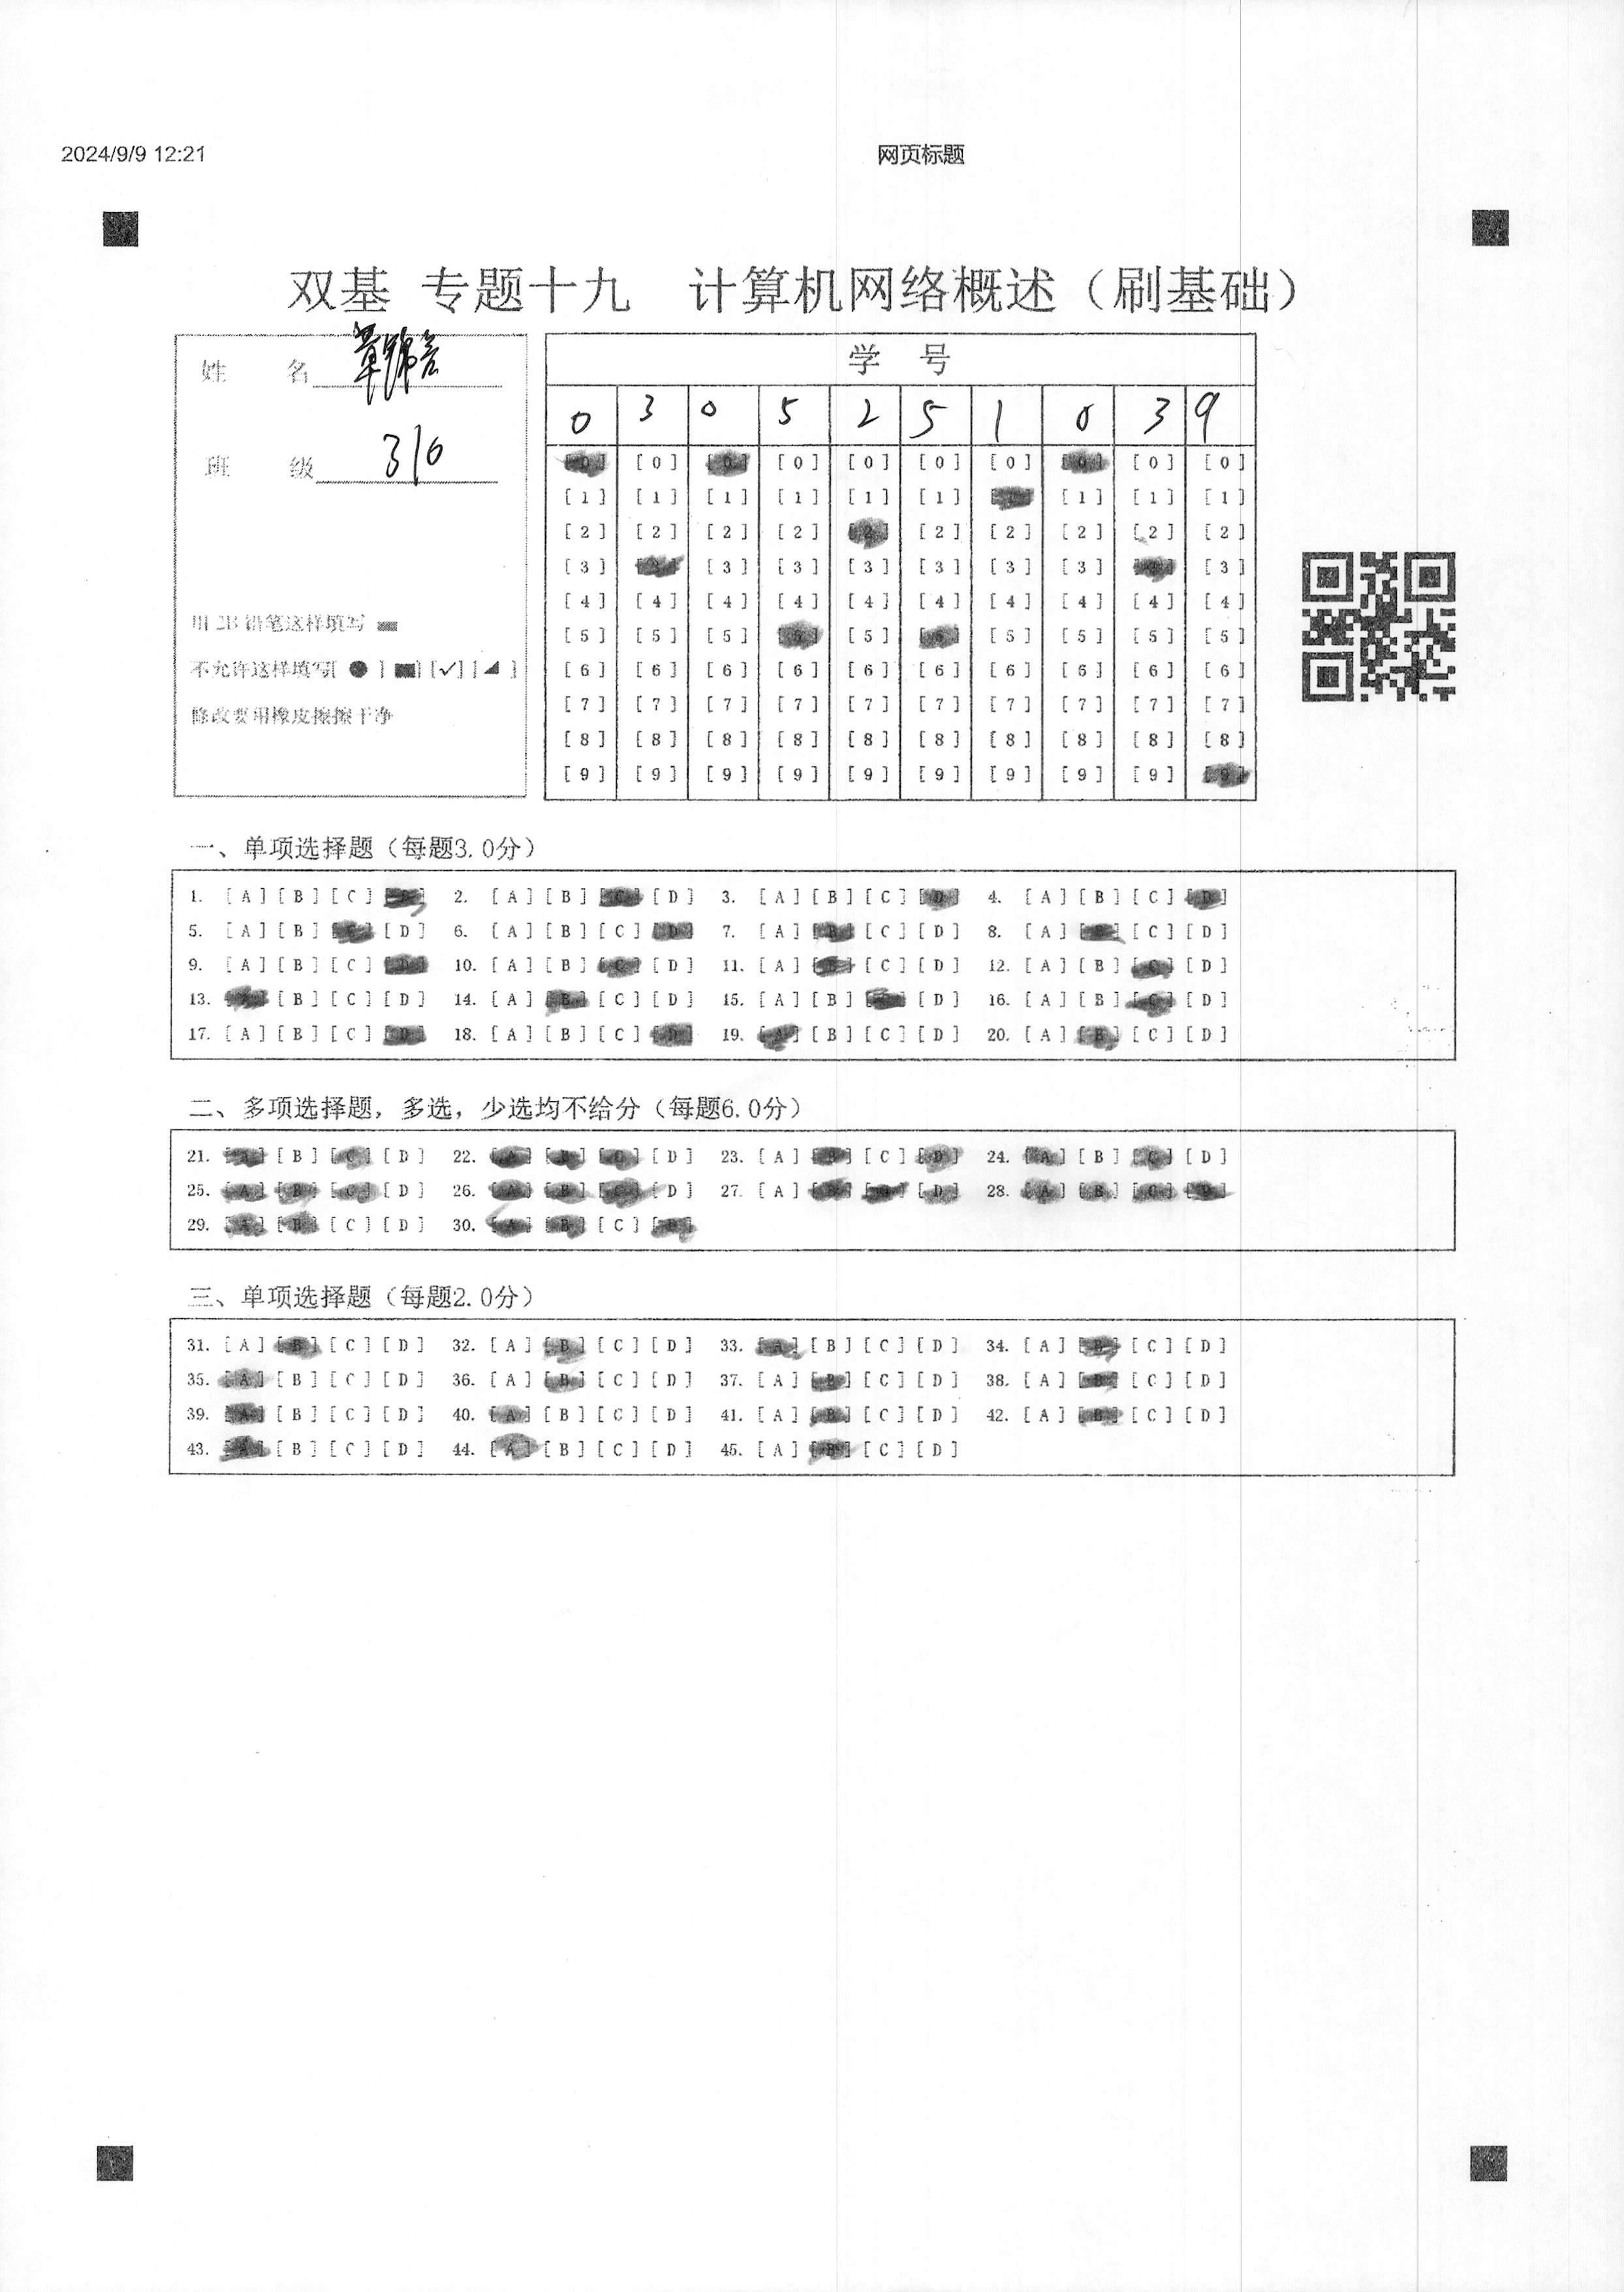 2024/9/9 12:21 网页标题
双基 专题十九 计算机网络概述（刷基础）
姓 名
班 级 316
用 2B 铅笔这样填写
不允许这样填写[ ● ] [■] [✓] [◢ ]
修改要用橡皮擦擦干净
学 号
0 3 0 5 2 5 1 0 3 9
[0] [0] [0] [0] [0] [0] [0] [0] [0] [0]
[1] [1] [1] [1] [1] [1] [1] [1] [1] [1]
[2] [2] [2] [2] [2] [2] [2] [2] [2] [2]
[3] [3] [3] [3] [3] [3] [3] [3] [3] [3]
[4] [4] [4] [4] [4] [4] [4] [4] [4] [4]
[5] [5] [5] [5] [5] [5] [5] [5] [5] [5]
[6] [6] [6] [6] [6] [6] [6] [6] [6] [6]
[7] [7] [7] [7] [7] [7] [7] [7] [7] [7]
[8] [8] [8] [8] [8] [8] [8] [8] [8] [8]
[9] [9] [9] [9] [9] [9] [9] [9] [9] [9]
一、单项选择题（每题3.0分）
1. [A] [B] [C] [D] 2. [A] [B] [C] [D] 3. [A] [B] [C] [D] 4. [A] [B] [C] [D]
5. [A] [B] [C] [D] 6. [A] [B] [C] [D] 7. [A] [B] [C] [D] 8. [A] [B] [C] [D]
9. [A] [B] [C] [D] 10. [A] [B] [C] [D] 11. [A] [B] [C] [D] 12. [A] [B] [C] [D]
13. [A] [B] [C] [D] 14. [A] [B] [C] [D] 15. [A] [B] [C] [D] 16. [A] [B] [C] [D]
17. [A] [B] [C] [D] 18. [A] [B] [C] [D] 19. [A] [B] [C] [D] 20. [A] [B] [C] [D]
二、多项选择题，多选，少选均不给分（每题6.0分）
21. [A] [B] [C] [D] 22. [A] [B] [C] [D] 23. [A] [B] [C] [D] 24. [A] [B] [C] [D]
25. [A] [B] [C] [D] 26. [A] [B] [C] [D] 27. [A] [B] [C] [D] 28. [A] [B] [C] [D]
29. [A] [B] [C] [D] 30. [A] [B] [C] [D]
三、单项选择题（每题2.0分）
31. [A] [B] [C] [D] 32. [A] [B] [C] [D] 33. [A] [B] [C] [D] 34. [A] [B] [C] [D]
35. [A] [B] [C] [D] 36. [A] [B] [C] [D] 37. [A] [B] [C] [D] 38. [A] [B] [C] [D]
39. [A] [B] [C] [D] 40. [A] [B] [C] [D] 41. [A] [B] [C] [D] 42. [A] [B] [C] [D]
43. [A] [B] [C] [D] 44. [A] [B] [C] [D] 45. [A] [B] [C] [D]